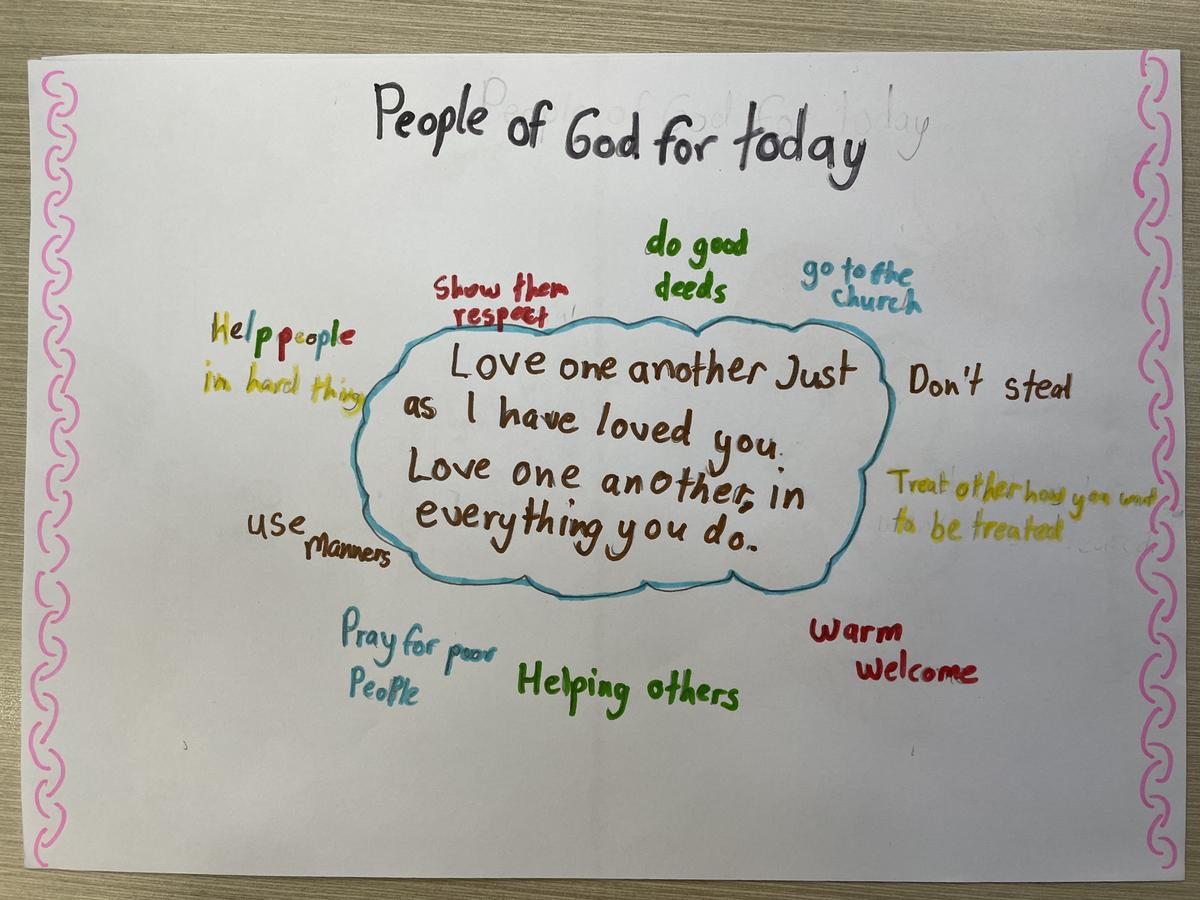 People of God for today
do good
deeds
go to the
church
Show them
respect
Help people
in hard thing
Love one another Just
as I have loved you.
Love one another, in
everything you do.
Don't steal
Treat other how you want
to be treated
use
manners
Pray for poor
People
Helping others
warm
welcome